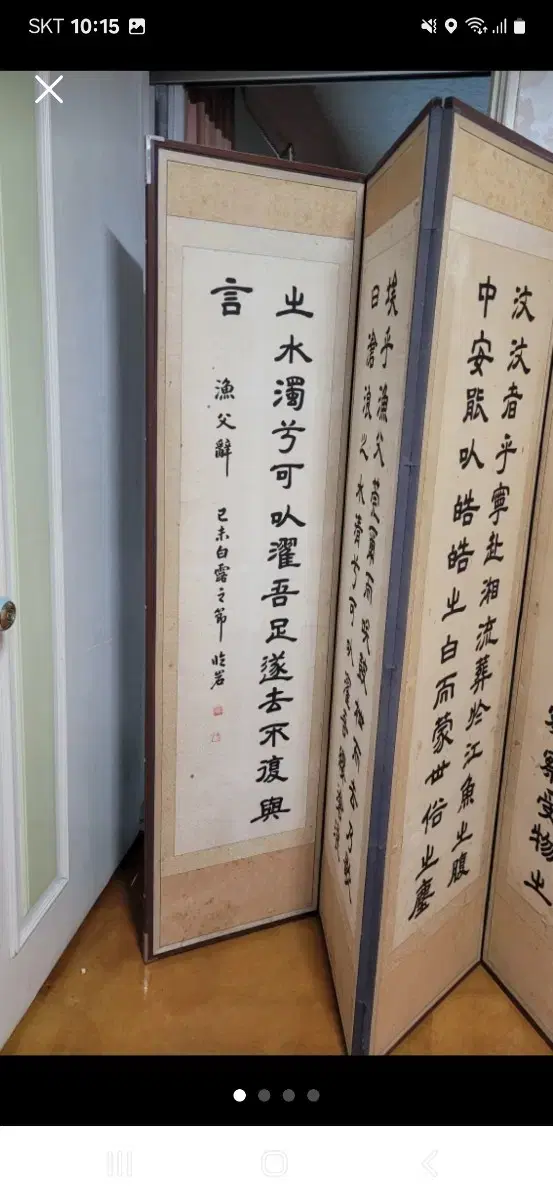 SKT 10:15
察受物之
汶汶者乎寧赴湘流葬於江魚之腹
中安能以皓皓之白而蒙世俗之塵
埃乎漁父莞爾而笑鼓枻而去乃歌
曰滄浪之水清兮可以濯吾纓滄浪
之水濁兮可以濯吾足遂去不復與
言
漁父辭
己未白露之節